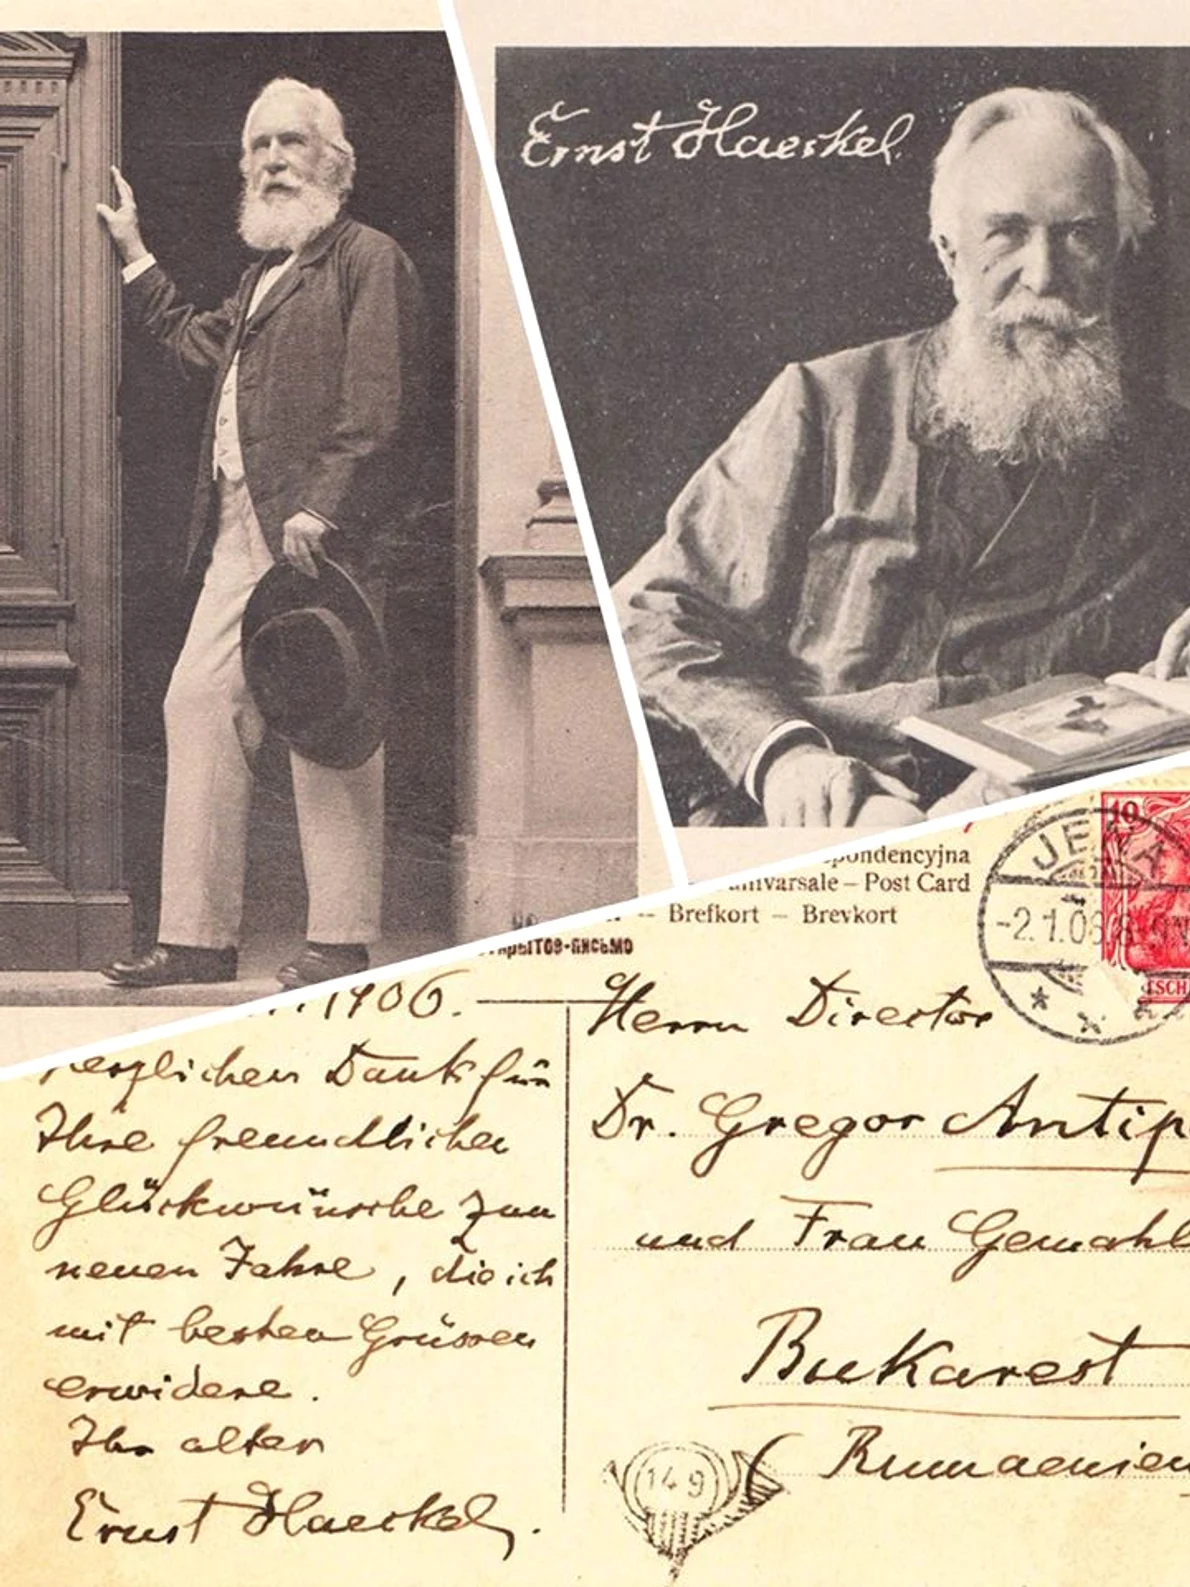 Ernst Haeckel.
spondencyjna
univarsale – Post Card
– Brefkort – Brevkort
ткрытое-письмо
1906.
Herzlichen Dank für
Ihre freundlichen
Glückwünsche zum
neuen Jahre, die ich
mit besten Grüssen
erwidere.
Ihr alter
Ernst Haeckel.
JENA
-2.1.06
10
TSCH
Herrn Director
Dr. Gregor Antip
und Frau Gemahl
Bukarest
(Rumaenien
149